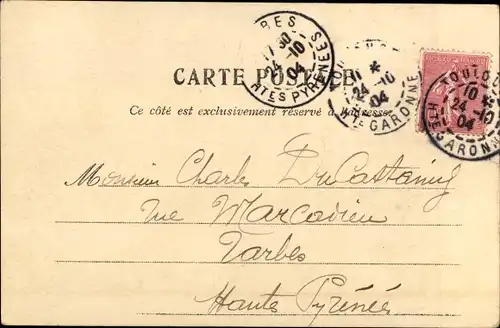 BRES
17 30
24-10
04
HTES PYRENEES
*
24-10
04
HTE GARONNE
TOULOUSE
10
24-10
04
HTE GARONNE
CARTE POSTALE
Ce côté est exclusivement réservé à l'adresse
Monsieur Charles DuCastaing
rue Marcadieu
Tarbes
Hautes Pyrénées